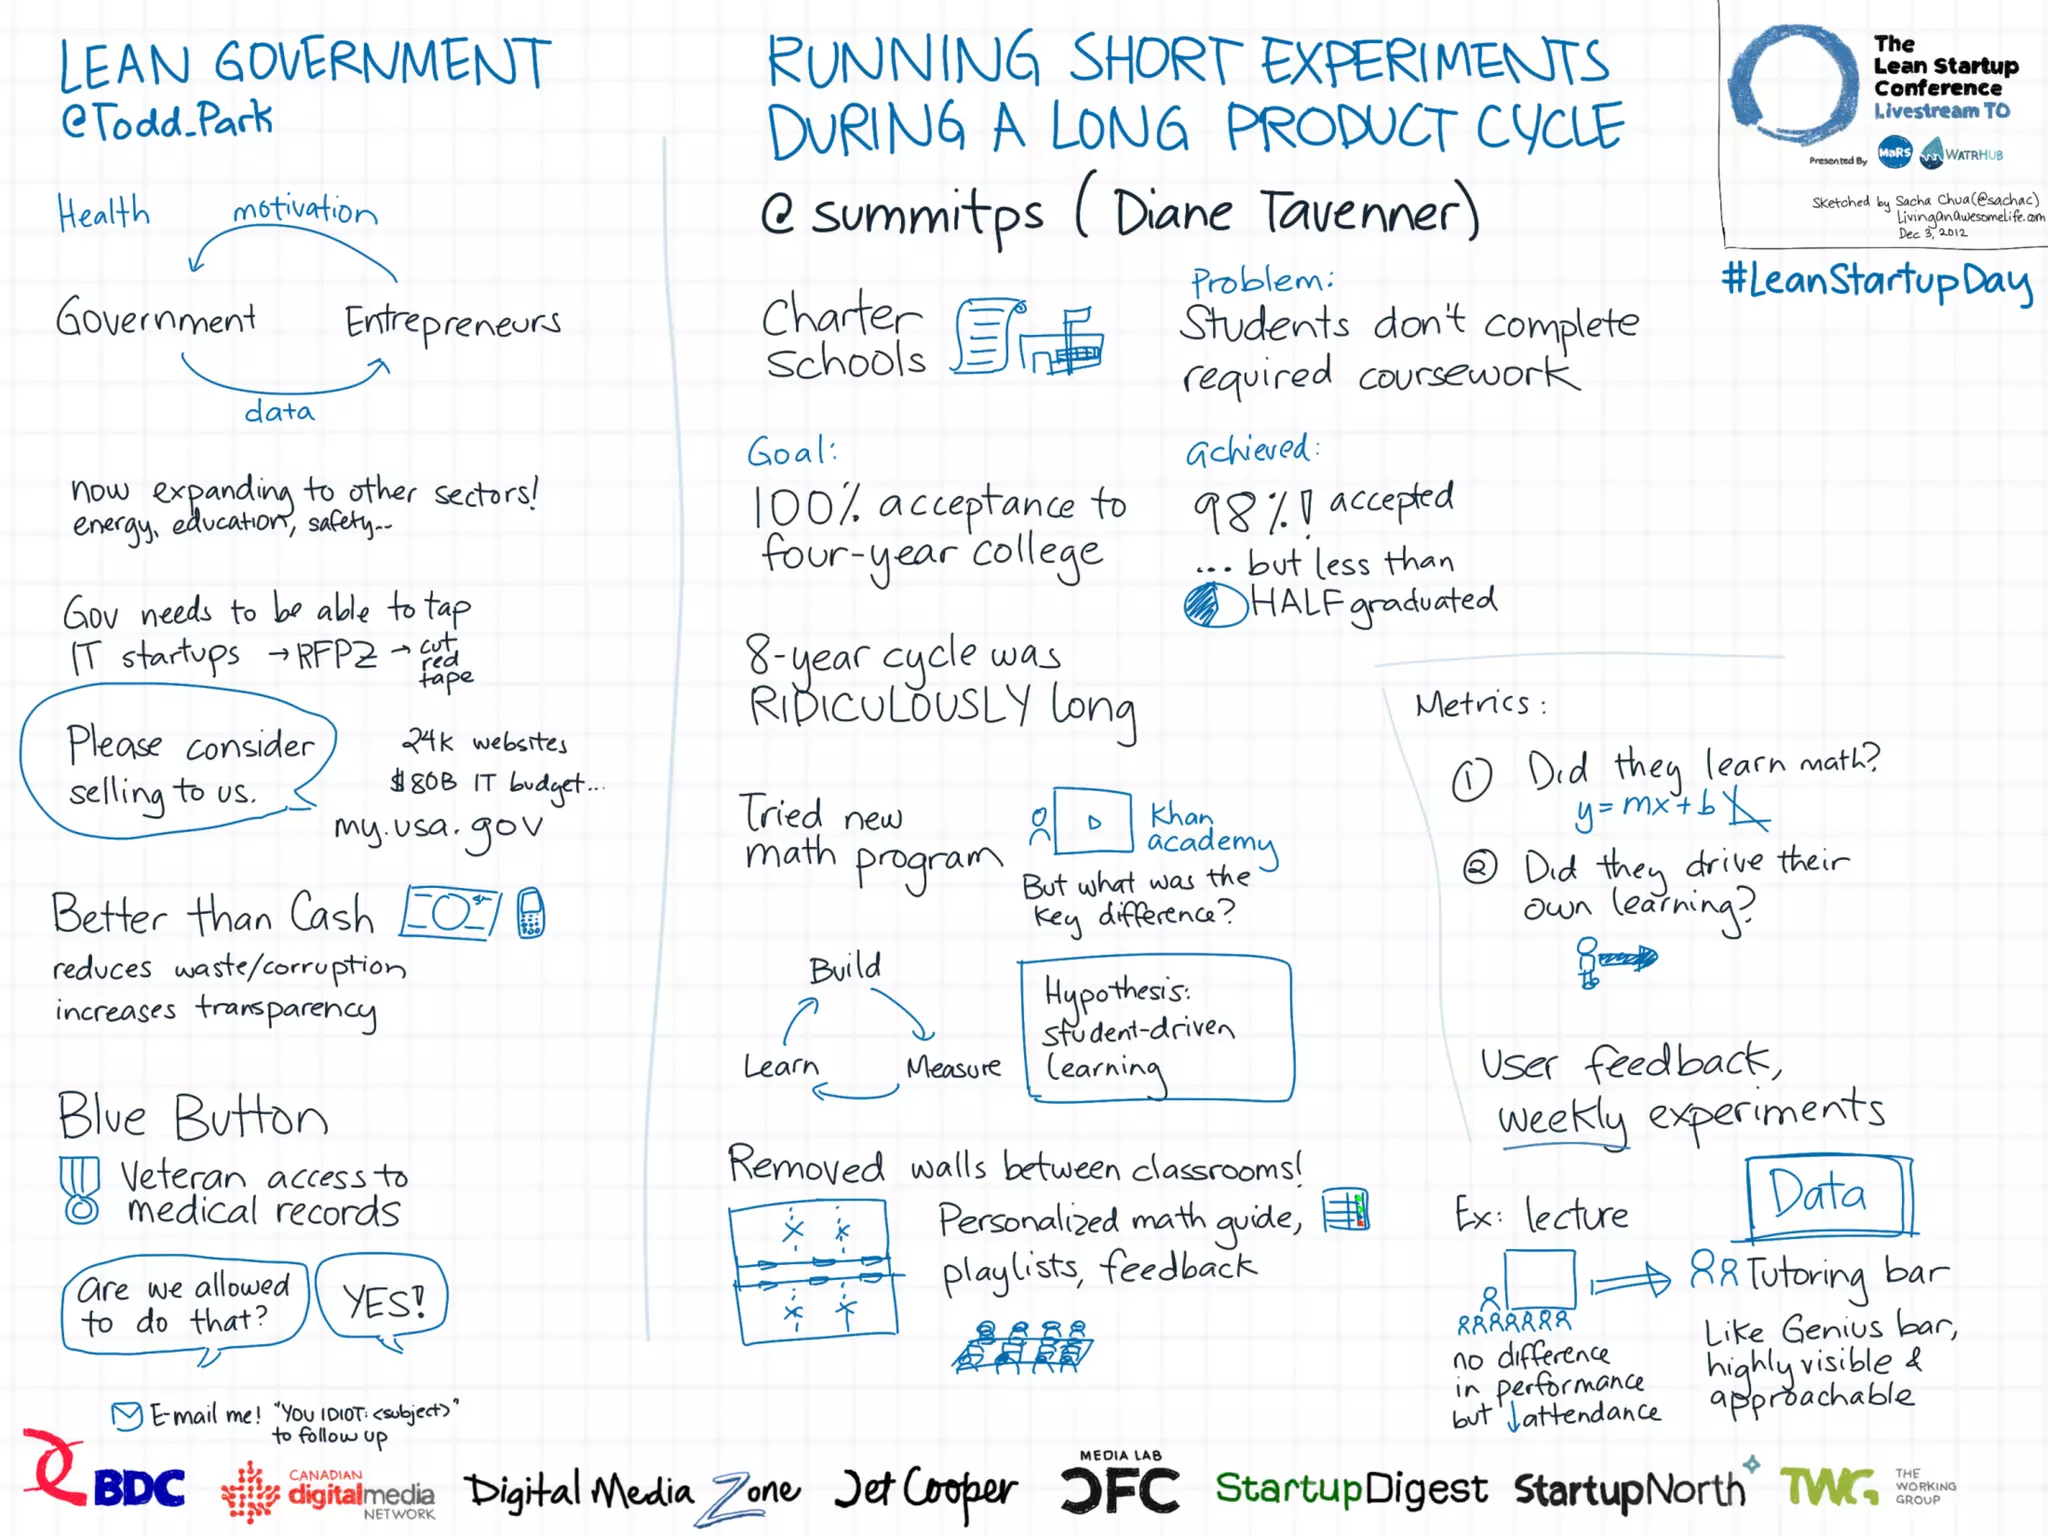 LEAN GOVERNMENT
@Todd_Park
Health
motivation
Government
Entrepreneurs
data
now expanding to other sectors!
energy, education, safety...
Gov needs to be able to tap
IT startups → RFPZ → cut
red
tape
Please consider
selling to us.
24k websites
$80B IT budget...
my.usa.gov
Better than Cash
reduces waste/corruption
increases transparency
Blue Button
Veteran access to
medical records
are we allowed
to do that?
YES!
E-mail me! "YOU IDIOT: <subject>"
to follow up
RUNNING SHORT EXPERIMENTS
DURING A LONG PRODUCT CYCLE
@summitps (Diane Tavenner)
Charter
schools
Problem:
Students don't complete
required coursework
Goal:
100% acceptance to
four-year college
achieved:
98%! accepted
... but less than
HALF graduated
8-year cycle was
RIDICULOUSLY long
Tried new
math program
Khan
academy
But what was the
key difference?
Build
Measure
Learn
Hypothesis:
student-driven
learning
Removed walls between classrooms!
Personalized math guide,
playlists, feedback
Metrics:
① Did they learn math?
y=mx+b
② Did they drive their
own learning?
User feedback,
weekly experiments
Data
Ex: lecture
no difference
in performance
but ↓attendance
Tutoring bar
Like Genius bar,
highly visible &
approachable
The
Lean Startup
Conference
Livestream TO
Presented By
MaRS
WATRHUB
Sketched by Sacha Chua (@sachac)
LivingAnAwesomeLife.com
Dec 3, 2012
#LeanStartupDay
BDC
CANADIAN
digitalmedia
NETWORK
Digital Media Zone
Jet Cooper
MEDIA LAB
CFC
StartupDigest
StartupNorth
TWG
THE
WORKING
GROUP